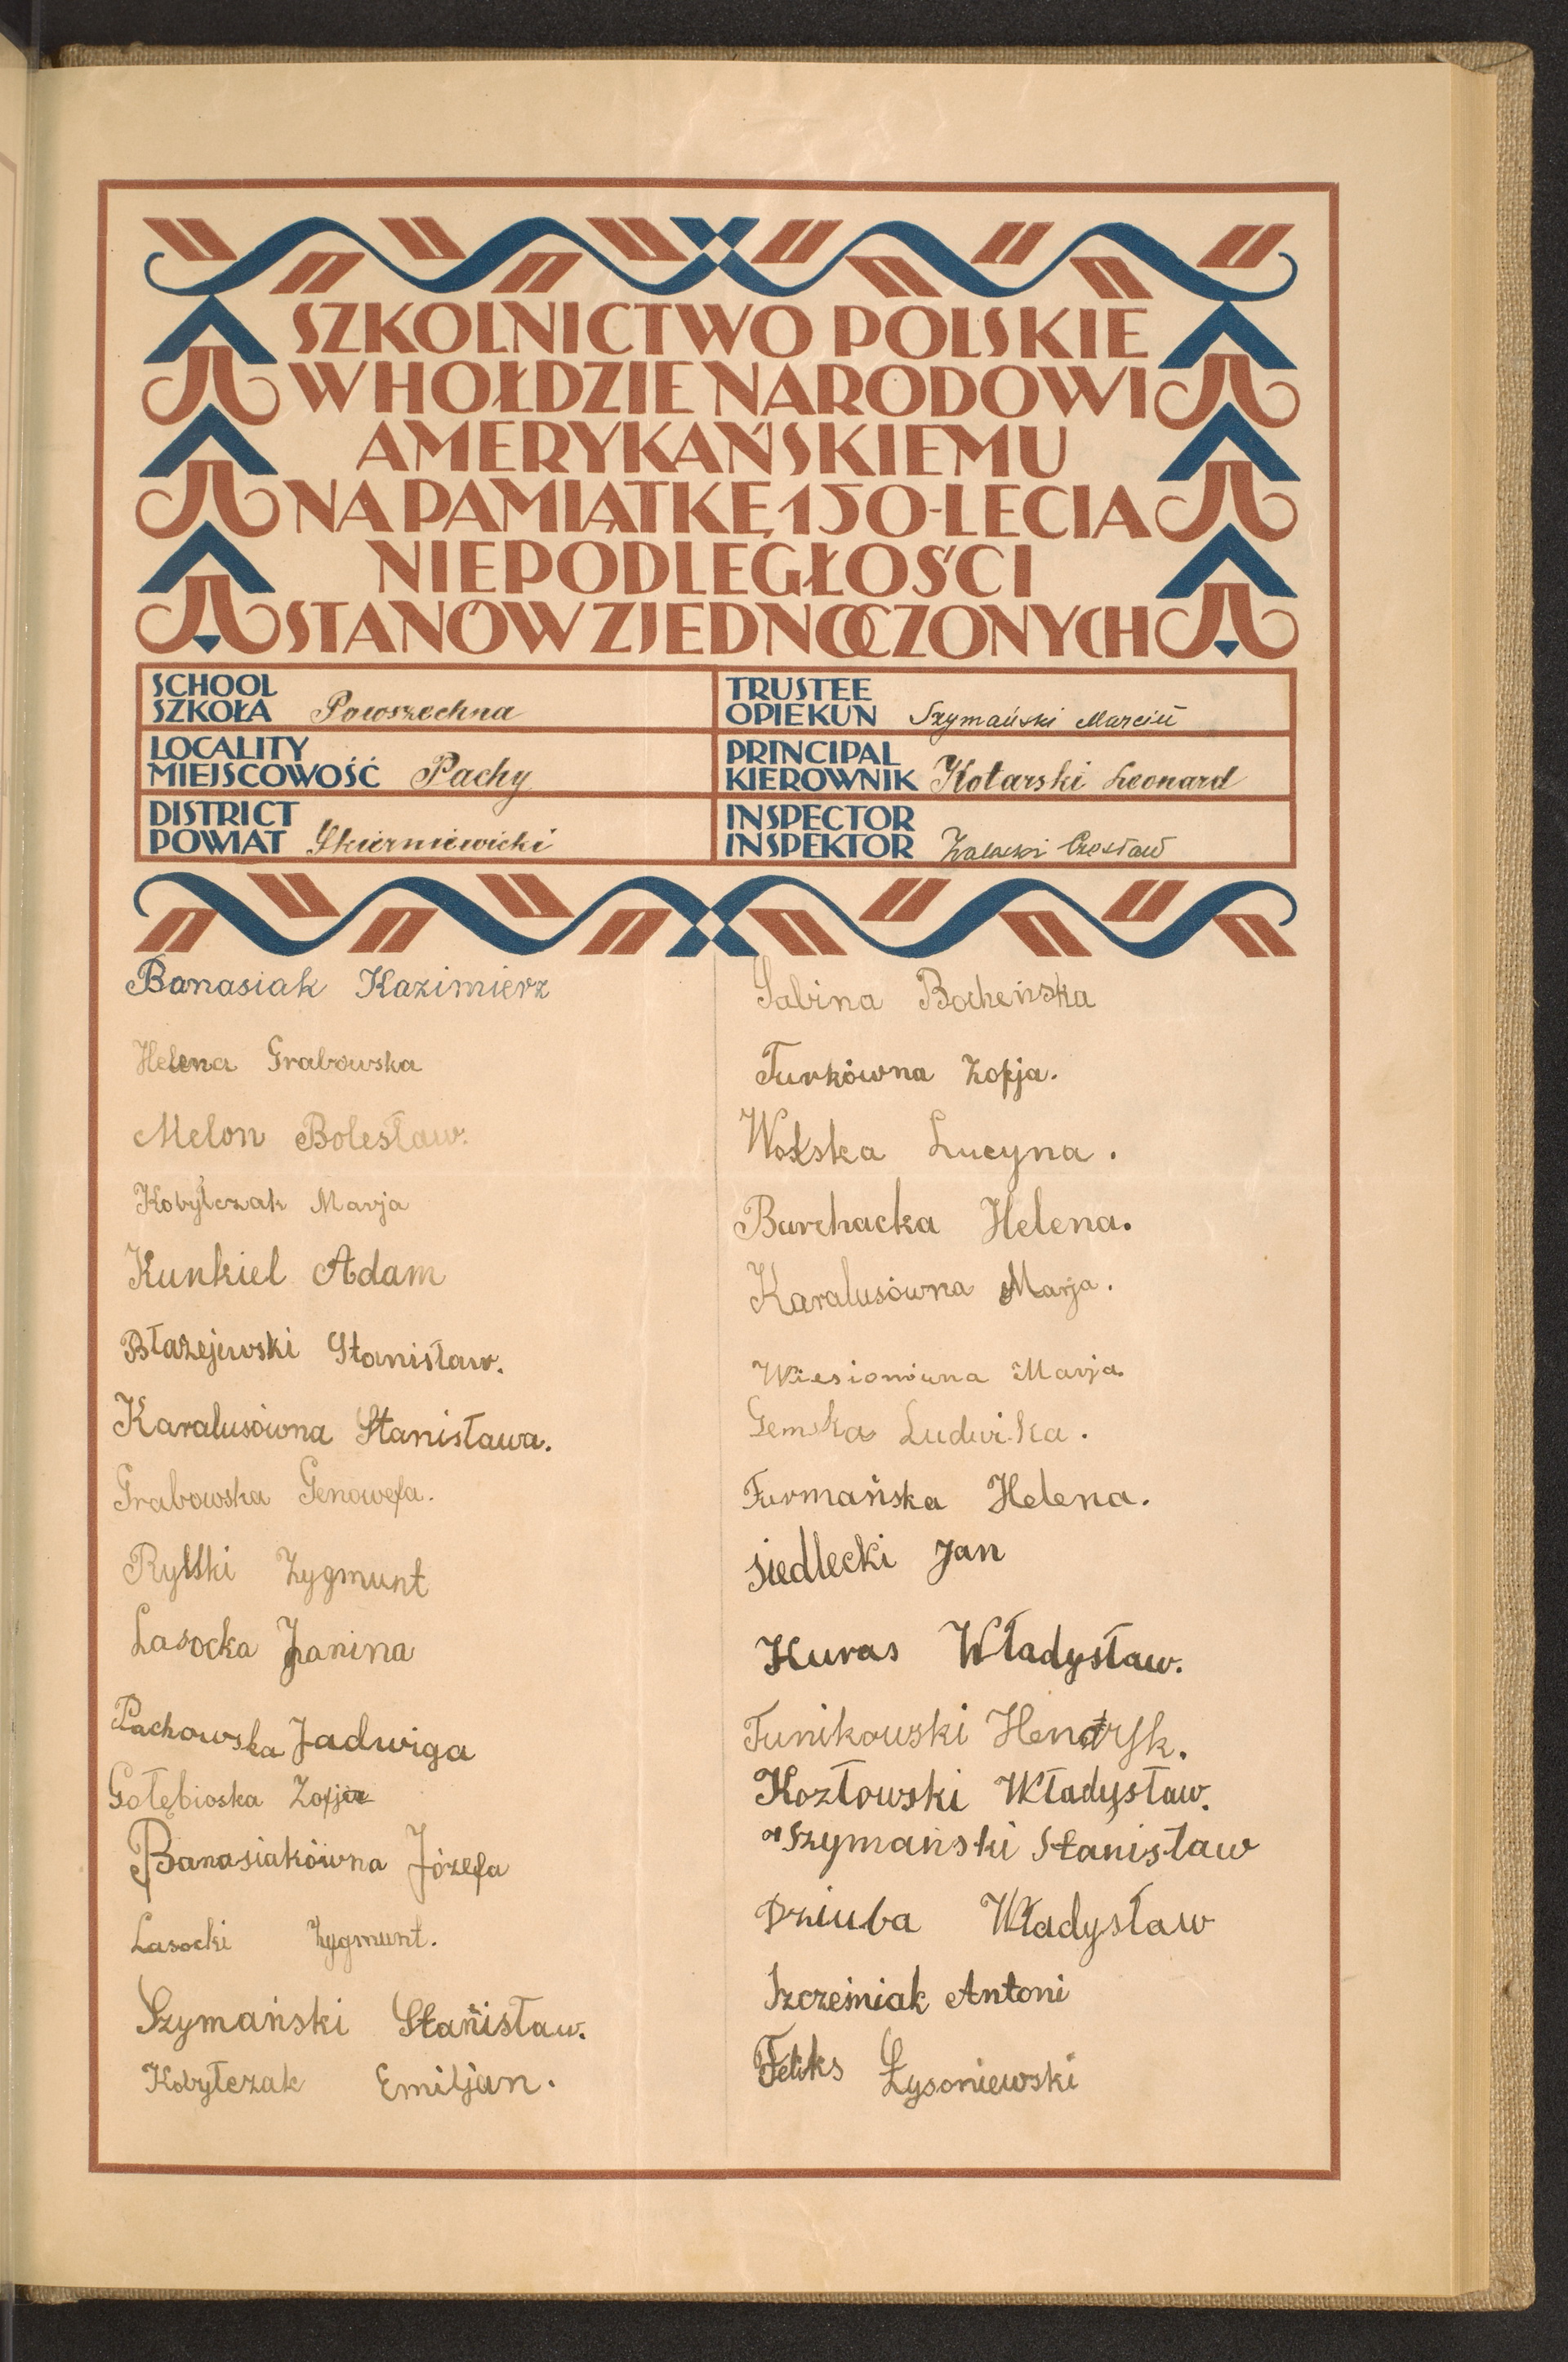 SZKOLNICTWO POLSKIE
W HOŁDZIE NARODOWI
AMERYKAŃSKIEMU
NA PAMIĄTKĘ 150-LECIA
NIEPODLEGŁOŚCI
STANÓW ZJEDNOCZONYCH
SCHOOL
SZKOŁA Powszechna
LOCALITY
MIEJSCOWOŚĆ Pachy
DISTRICT
POWIAT Skierniewicki
TRUSTEE
OPIEKUN Szymański Marcin
PRINCIPAL
KIEROWNIK Kotarski Leonard
INSPECTOR
INSPEKTOR Czesław
Banasiak Kazimierz
Helena Grabowska
Melon Bolesław.
Kobyłczak Marja
Kunkiel Adam
Błażejewski Stanisław.
Karalusówna Stanisława.
Grabowska Genowefa.
Rylski Zygmunt
Lasocka Janina
Pachowska Jadwiga
Gołębioska Zofja
Banasiakówna Józefa
Lasocki Zygmunt.
Szymański Stanisław.
Kobyłczak Emiljan.
Sabina Bocheńska
Turkówna Zofja.
Wolska Lucyna.
Burchacka Helena.
Karalusówna Marja.
Wiesionówna Marja.
Gemska Ludwika.
Furmańska Helena.
Siedlecki Jan
Kuras Władysław.
Funikowski Hendryk.
Kozłowski Władysław.
Szymański Stanisław
Dziuba Władysław
Szcześniak Antoni
Feliks Łysoniewski